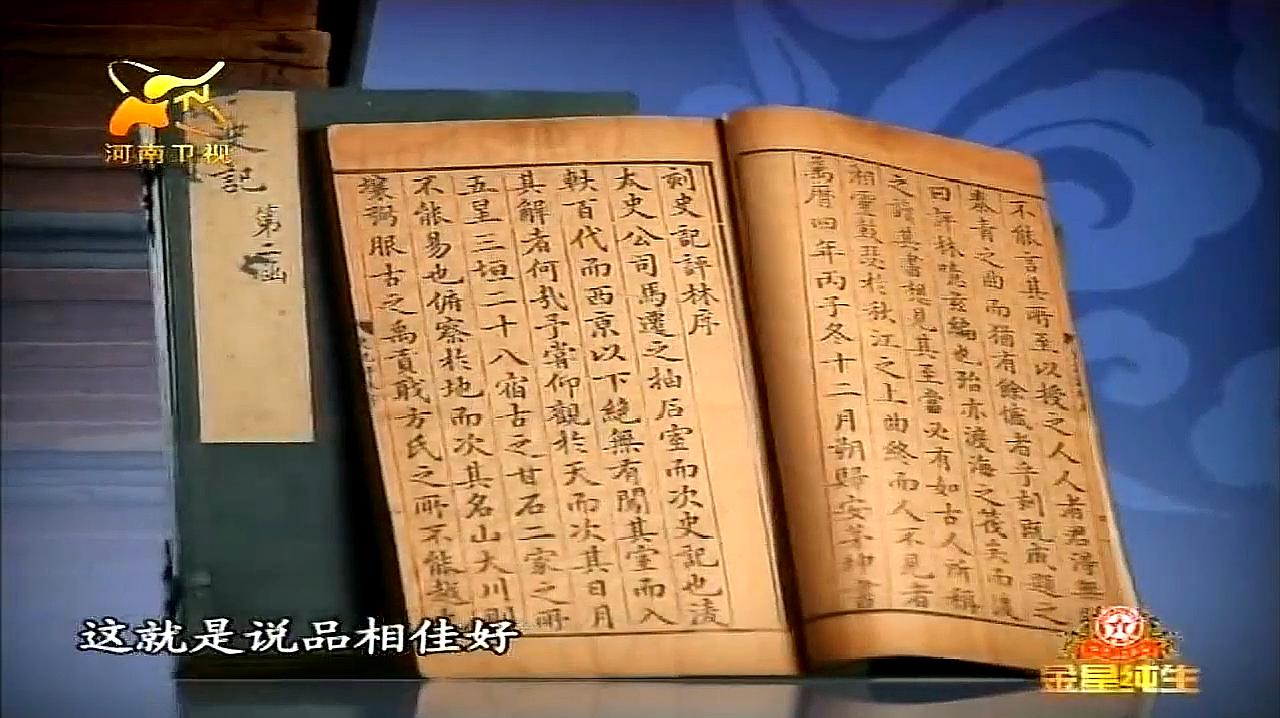 河南卫视
史記
第二函
刻史記評林序
太史公司馬遷之抽石室而次史記也淩
軼百代而西京以下絶無有闖其室而入
其解者何哉予嘗仰觀於天而次其日月
五星三垣二十八宿古之甘石二家之所
不能易也俯察於地而次其名山大川則
壤弼服古之禹貢職方氏之所不能越
不能言其所至以授之人人者君
秦青之曲而猶有餘憾者乎刻既成題之
曰評林噫玆編也殆亦渡海之筏矣而
之讀其書想見其至當必有如古人所稱
湘靈鼓瑟於秋江之上曲終而人不見者
萬曆四年丙子冬十二月朔歸安茅坤書
这就是说品相佳好
金星纯生